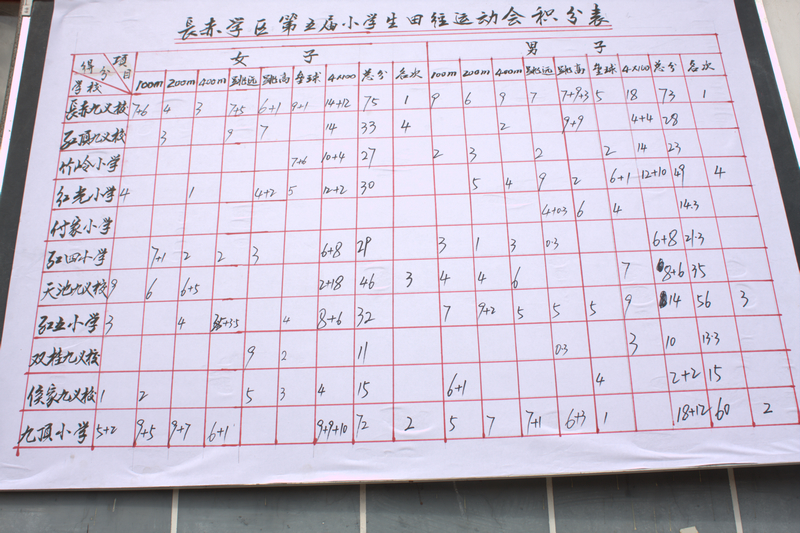 長赤学区第五届小学生田径运动会积分表
得分 项目 学校 女子 男子
100m 200m 400m 跳远 跳高 垒球 4×100 总分 名次 100m 200m 400m 跳远 跳高 垒球 4×100 总分 名次
長赤九义校 7+6 4 3 7+5 6+1 9+1 14+12 75 1 9 6 9 7 7+9+3 5 18 73 1
弘顶九义校 3 9 7 14 33 4 2 9+9 4+4 28
竹岭小学 7+6 10+4 27 2 3 2 2 14 23
红光小学 4 1 4+2 5 12+2 30 5 4 9 2 6+1 12+10 49 4
付家小学 4+0.3 6 4 14.3
弘田小学 7+1 2 2 3 6+8 29 3 1 3 0.3 6+8 21.3
天池九义校 9 6 6+5 2+18 46 3 4 4 6 7 8+6 35
弘立小学 3 4 4 8+6 32 7 9+2 5 5 5 9 14 56 3
双桂九义校 9 2 11 0.3 3 10 13.3
侯家九义校 1 2 5 3 4 15 6+1 4 2+2 15
九顶小学 5+2 9+5 9+7 6+1 9+9+10 72 2 5 7 7+1 6+3 1 18+12 60 2